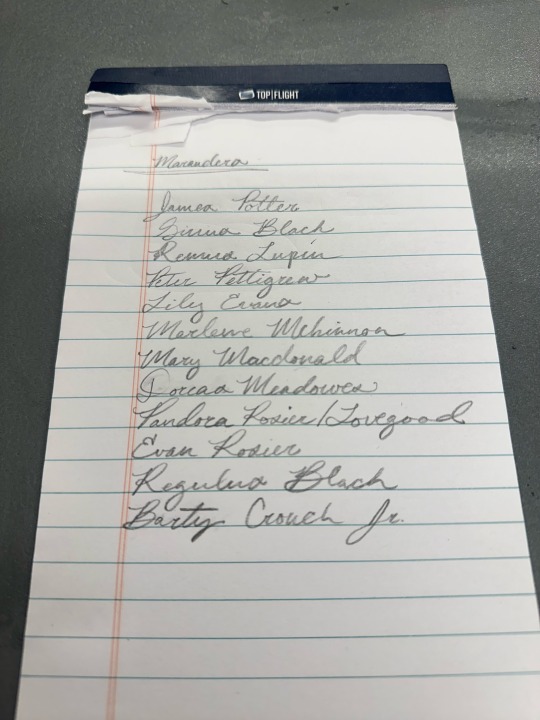 TOP FLIGHT
Marauders
James Potter
Sirius Black
Remus Lupin
Peter Pettigrew
Lily Evans
Marlene Mckinnon
Mary Macdonald
Dorcas Meadowes
Pandora Rosier/Lovegood
Evan Rosier
Regulus Black
Barty Crouch Jr.